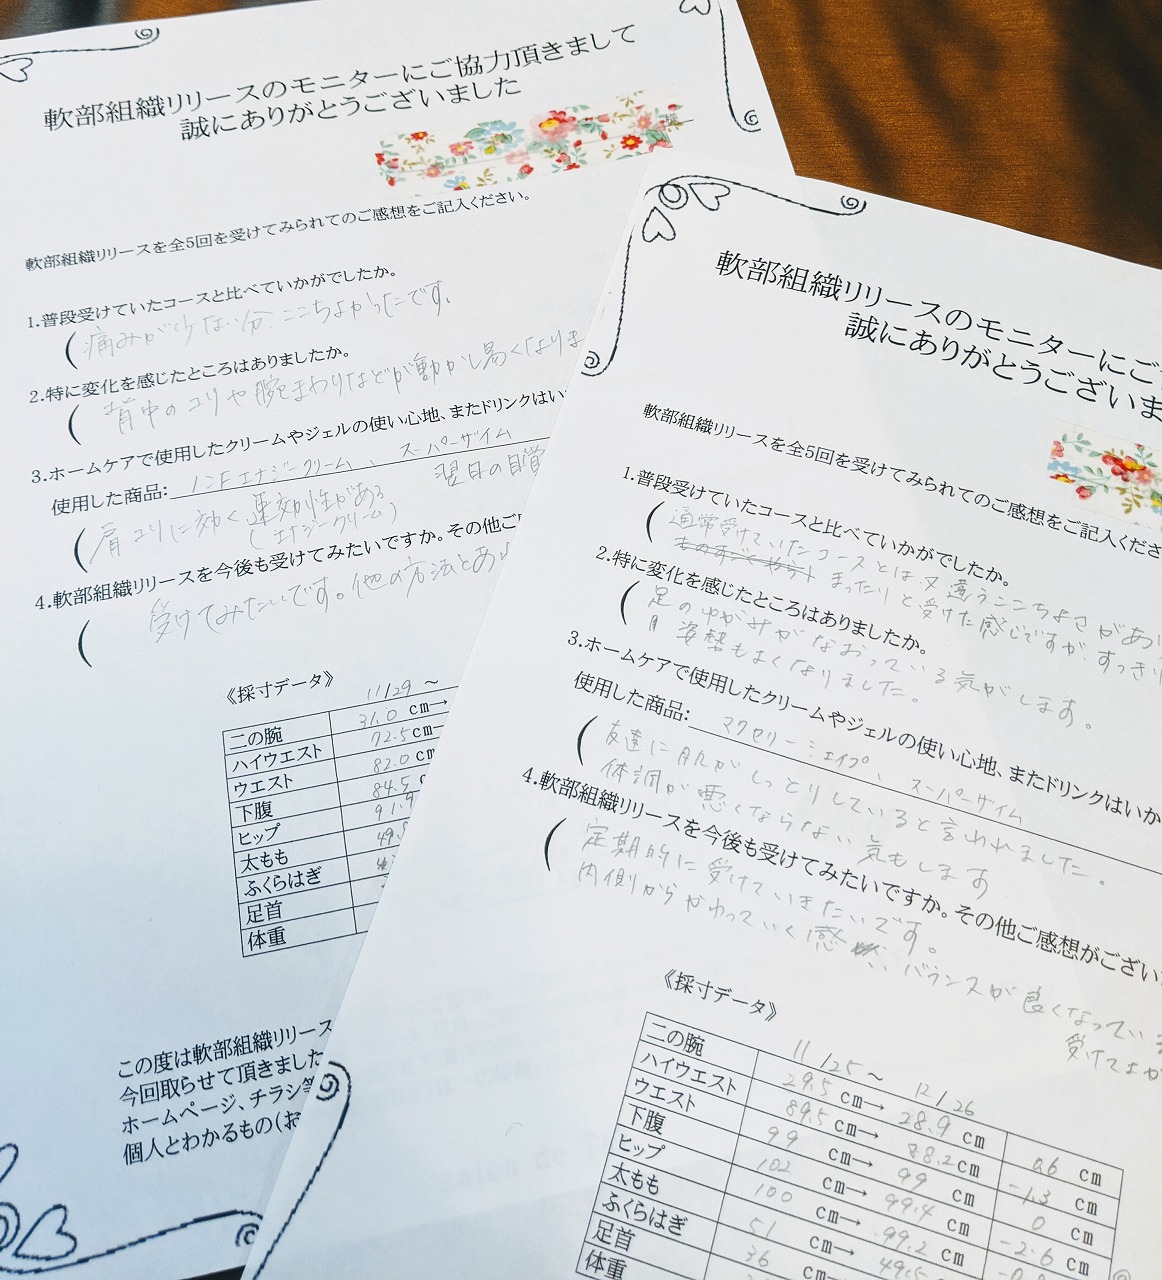 軟部組織リリースのモニターにご協力頂きまして
誠にありがとうございました
様
軟部組織リリースを全5回を受けてみられてのご感想をご記入ください。
1.普段受けていたコースと比べていかがでしたか。
(痛みが少ない分、ここちよかったです。
2.特に変化を感じたところはありましたか。
(背中のコリや腕まわりなどが動かし易くなりま
3.ホームケアで使用したクリームやジェルの使い心地、またドリンクはい
使用した商品: エナジークリーム、スーパーザイム
(肩コリに効く 速効性がある 翌日の目覚
(エナジークリーム)
4.軟部組織リリースを今後も受けてみたいですか。その他ご
(受けてみたいです。他の方法とあ
《採寸データ》
11/29 ～
二の腕 31.0 cm→
ハイウエスト 72.5 cm→
ウエスト 82.0 cm
下腹 84.5
ヒップ 91.9
太もも
ふくらはぎ
足首
体重
この度は軟部組織リリース
今回取らせて頂きました
ホームページ、チラシ等
個人とわかるもの(お
軟部組織リリースのモニターにご
誠にありがとうございま
軟部組織リリースを全5回を受けてみられてのご感想をご記入くださ
1.普段受けていたコースと比べていかがでしたか。
(通常受けていたコースとは又違うここちよさがあり
まったりと受けた感じですが、すっきり
2.特に変化を感じたところはありましたか。
(足のゆがみがなおっている気がします。
姿勢もよくなりました。
3.ホームケアで使用したクリームやジェルの使い心地、またドリンクはいか
使用した商品: マクセリーシェイプ、スーパーザイム
(友達に肌がしっとりしていると言われました。
体調が悪くならない気もします
4.軟部組織リリースを今後も受けてみたいですか。その他ご感想がござい
(定期的に受けていきたいです。
内側からかわっていく感 バランスが良くなってい
受けてよか
《採寸データ》
11/25 ～ 12/26
二の腕 29.5 cm→ 28.9 cm 0.6 cm
ハイウエスト 89.5 cm→ 88.2 cm -1.3 cm
ウエスト 99 cm→ 99 cm 0 cm
下腹 102 cm→ 99.4 cm -2.6 cm
ヒップ 100 cm→ 99.2 cm
太もも 51 cm→ 49.5
ふくらはぎ 36
足首
体重